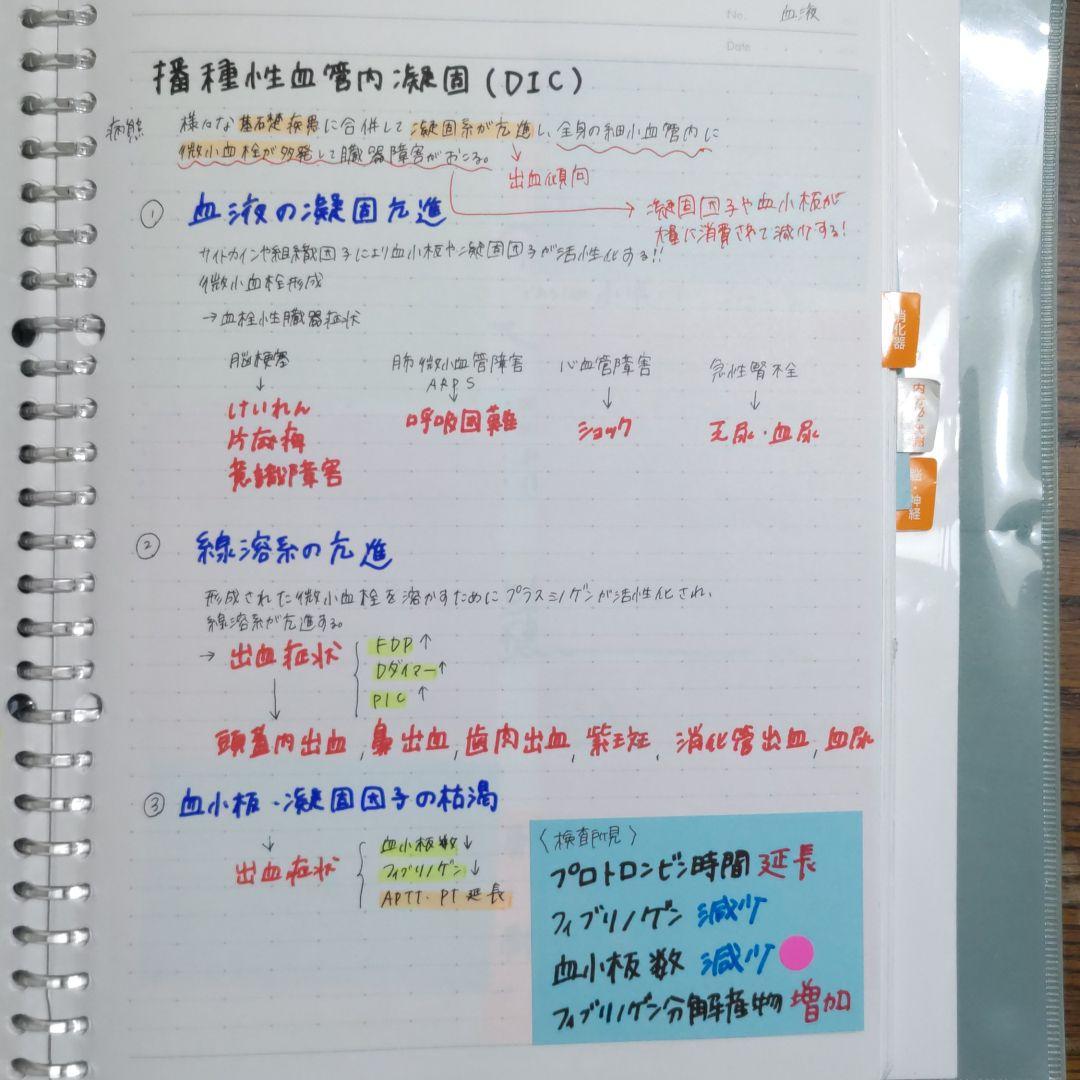 No. 血液
Date
播種性血管内凝固(DIC)
病態 様々な基礎疾患に合併して凝固系が亢進し、全身の細小血管内に
微小血栓が多発して臓器障害がおこる。
出血傾向
凝固因子や血小板が
大量に消費されて減少する!
① 血液の凝固亢進
サイトカインや組織因子により血小板や凝固因子が活性化する!!
微小血栓形成
→血栓性臓器症状
脳梗塞 肺微小血管障害 心血管障害 急性腎不全
ARDS
↓ ↓ ↓ ↓
けいれん 呼吸困難 ショック 乏尿・血尿
片麻痺
意識障害
② 線溶系の亢進
形成された微小血栓を溶かすためにプラスミノゲンが活性化され、
線溶系が亢進する。
→ 出血症状
FDP↑
Dダイマー↑
PIC↑
↓
頭蓋内出血,鼻出血,歯肉出血,紫斑,消化管出血,血尿
③ 血小板・凝固因子の枯渇
↓
出血症状
血小板数↓
フィブリノゲン↓
APTT・PT延長
〈検査所見〉
プロトロンビン時間 延長
フィブリノゲン 減少
血小板数 減少
フィブリノゲン分解産物 増加
消化器
脳・神経